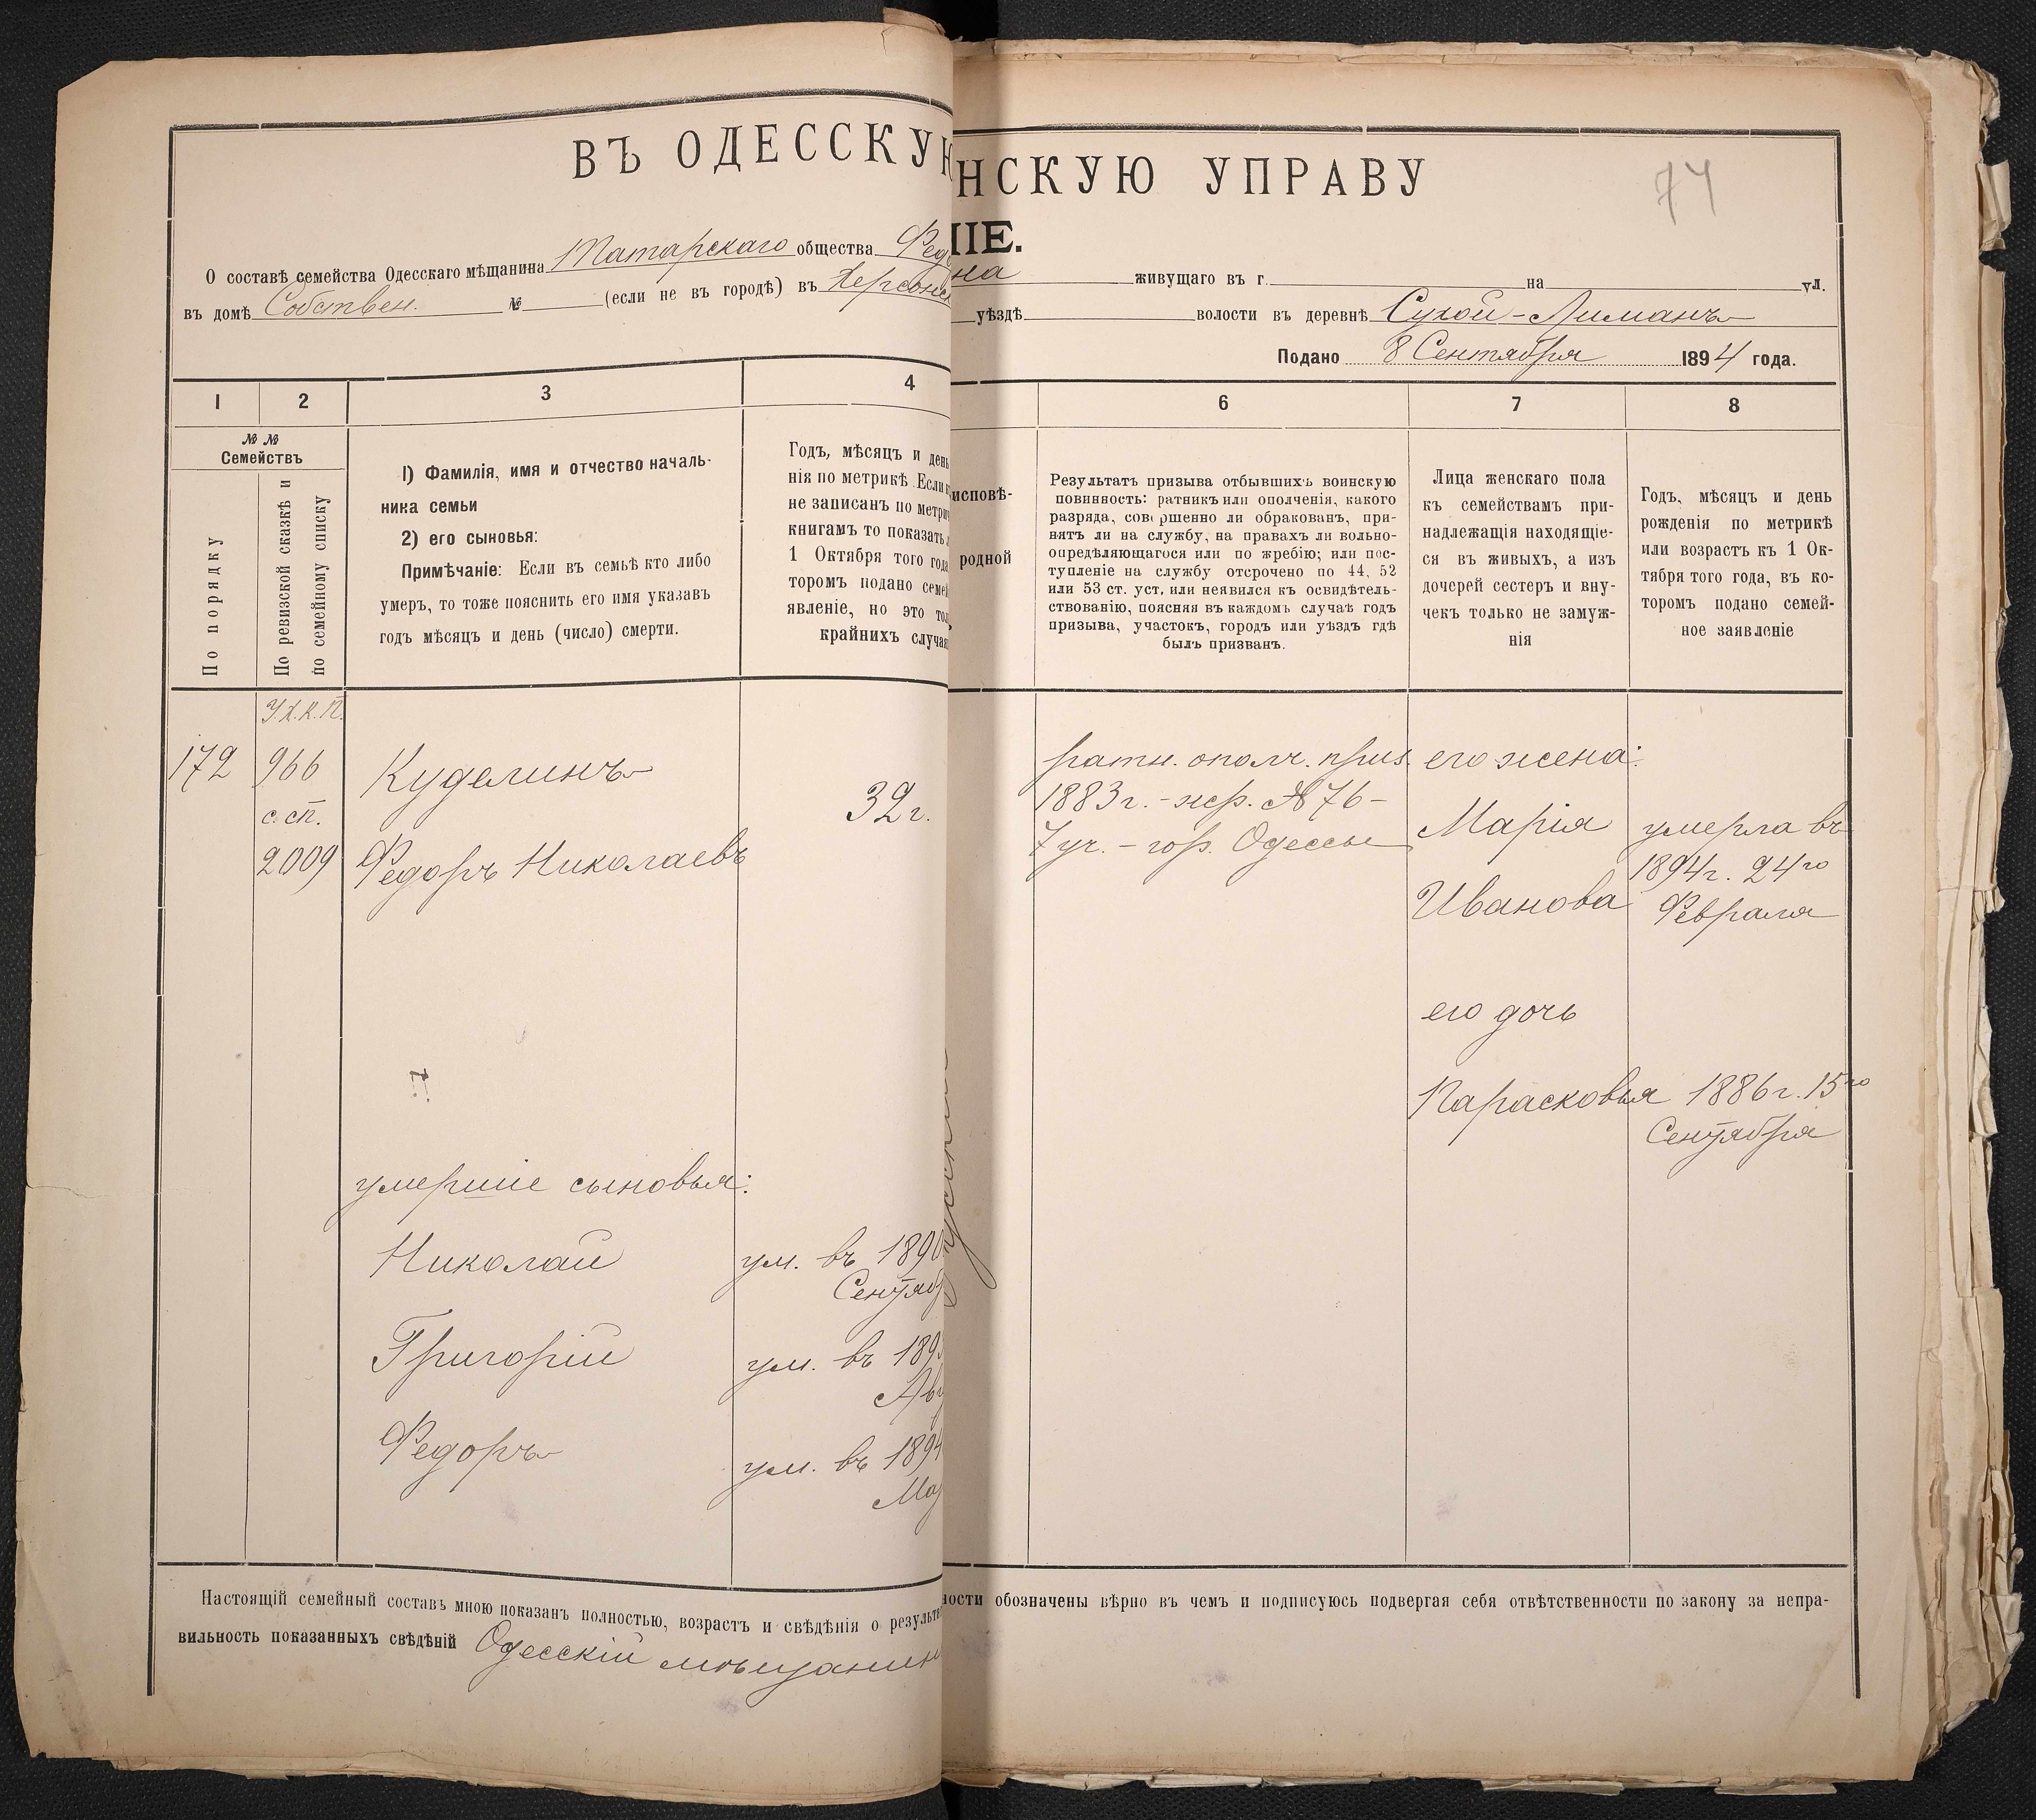 ВЪ ОДЕССКУЮ
НСКУЮ УПРАВУ
74
ІЕ.
О составѣ семейства Одесскаго мѣщанина Татарскаго общества Фед
на живущаго въ г. на ул.
въ домѣ Собствен. № (если не въ городѣ) въ Херсонс
уѣздѣ волости въ деревнѣ Сухой-Лиманъ
Подано 8 Сентября 1894 года.
1 2 3 4
6 7 8
№ №
Семействъ
По порядку
По ревизской сказкѣ и
по семейному списку
1) Фамилія, имя и отчество началь-
ника семьи
2) его сыновья:
Примѣчаніе: Если въ семьѣ кто либо
умеръ, то тоже пояснить его имя указавъ
годъ мѣсяцъ и день (число) смерти.
Годъ, мѣсяцъ и день
нія по метрикѣ. Если
не записанъ по метри
книгамъ то показать
1 Октября того года
торомъ подано семей
явленіе, но это то
крайнихъ случа
исповѣ-
родной
Результатъ призыва отбывшихъ воинскую
повинность: ратникъ или ополченія, какого
разряда, совершенно ли обракованъ, при-
нятъ ли на службу, на правахъ ли вольно-
опредѣляющагося или по жребію; или пос-
тупленіе на службу отсрочено по 44, 52
или 53 ст. уст. или неявился къ освидѣтель-
ствованію, поясняя въ каждомъ случаѣ годъ
призыва, участокъ, городъ или уѣздъ гдѣ
былъ призванъ.
Лица женскаго пола
къ семействамъ при-
надлежащія находящіе-
ся въ живыхъ, а изъ
дочерей сестеръ и вну-
чекъ только не замуж-
нія
Годъ, мѣсяцъ и день
рожденія по метрикѣ
или возрастъ къ 1 Ок-
тября того года, въ ко-
торомъ подано семей-
ное заявленіе
172
966
с. сп.
2009
Куделинъ
Федоръ Николаевъ
32 г.
ратн. ополч. приз.
1883 г. - жр. № 76 -
7 уч. - гор. Одессы
его жена:
Марія
Иванова
умерла въ
1894 г. 24го
Февраля
его дочь
Парасковья 1886 г. 15го
Сентября
умершіе сыновья:
Николай ум. въ 1890
Сентяб
Григорій ум. въ 189
Авг
Федоръ ум. въ 1894
Ма
Настоящій семейный составъ мною показанъ полностью, возрастъ и свѣдѣнія о результа
ности обозначены вѣрно въ чемъ и подписуюсь подвергая себя отвѣтственности по закону за непра-
вильность показанныхъ свѣдѣній Одесскій мѣщанин